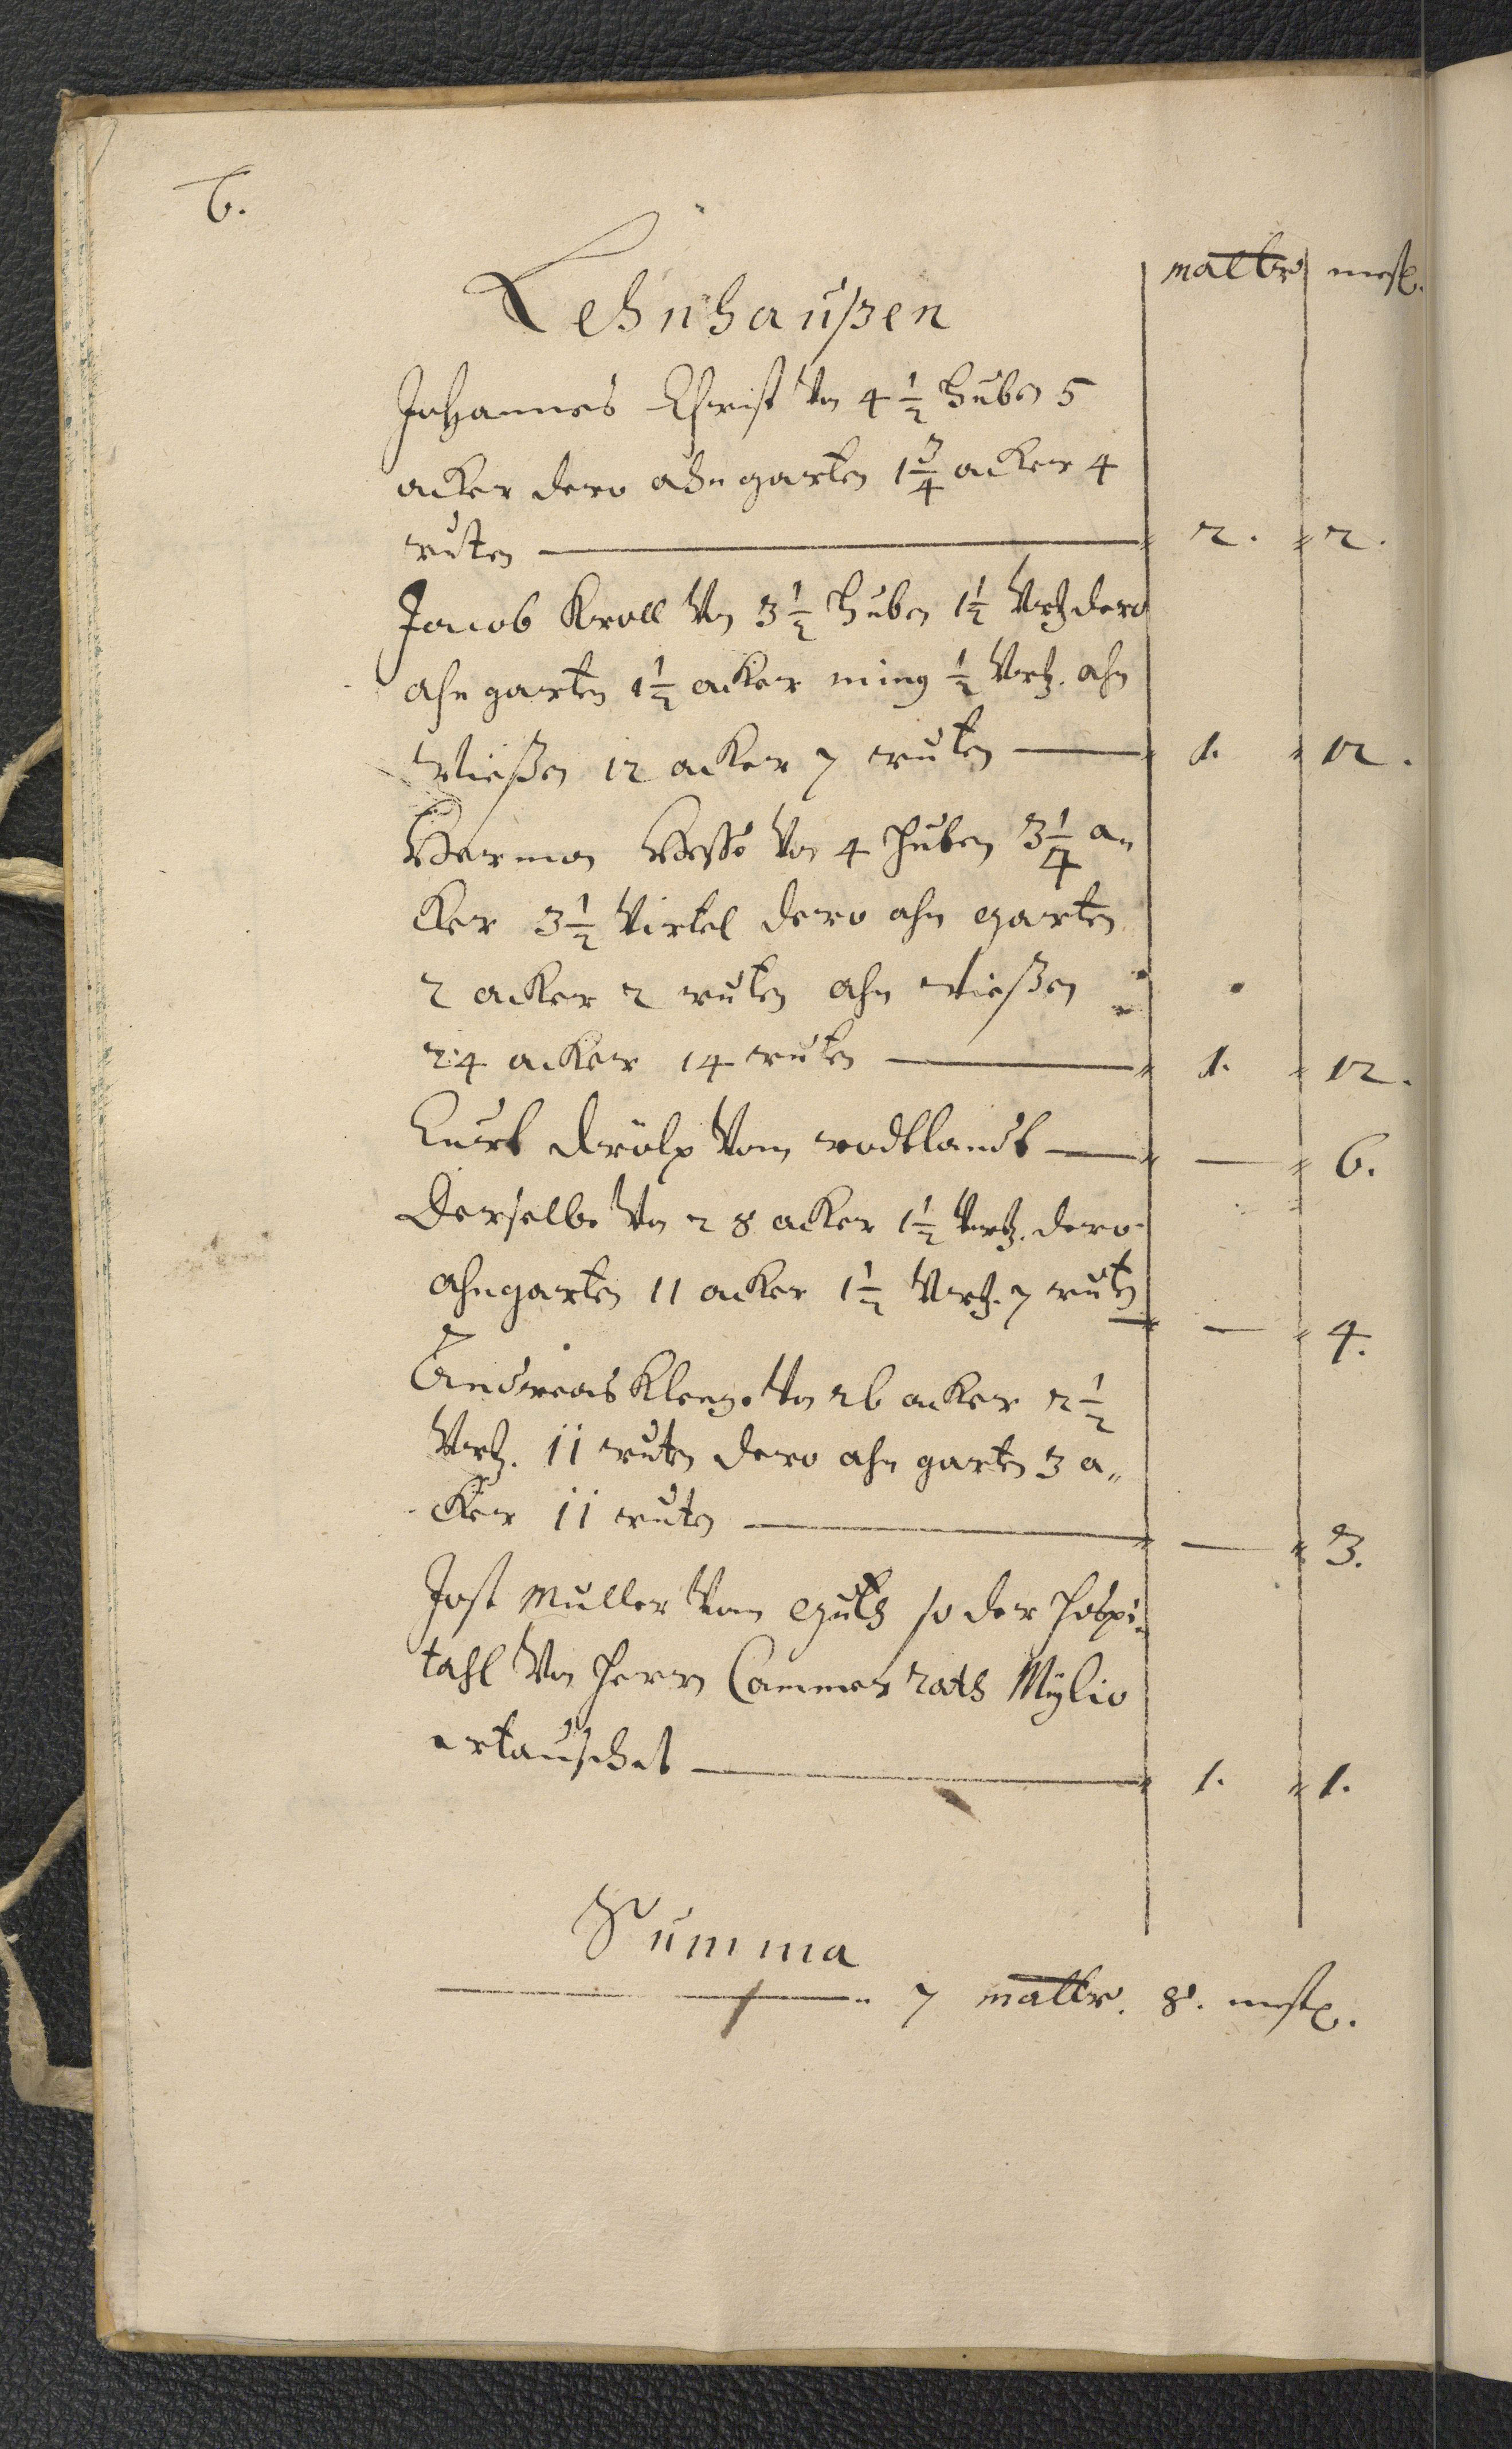 6.
maltr mest.
Lehnhaußen
Johannes Christ von 4 1/2 huben 5
acker dero ahn garten 1 3/4 acker 4
ruten — 2. 2.
Jacob Kroll von 3 1/2 huben 1 1/2 Vrtz dero
ahn garten 1 1/2 acker ming 1/2 Vrtz. ahn
wießen 12 acker 7 ruten — 1. 12.
Herman Hesse von 4 huben 3 1/4 a„
cker 3 1/2 Virtel dero ahn garten
2 acker 2 ruten ahn wießen
24 acker 14 ruten — 1. 12.
Curt vom rodtlandt — — 6.
Derselbe von 28 acker 1 1/2 Vrtz. dero
ahn garten 11 acker 1 1/2 Vrtz. 7 ruten
— — 4.
Andreas von 26 acker 2 1/2
Vrtz. 11 ruten dero ahn garten 3 a„
cker 11 ruten — — 3.
Jost Muller vom guth so der hospi„
tahl von herrn Cammer rath Mylio
ertauschet — 1. 1.
Summa
— 7 maltr. 8. mest.